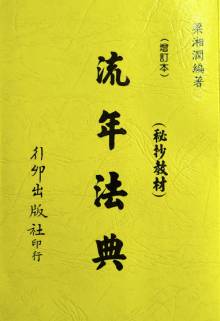 梁湘潤編著
(增訂本)
流年法典
(秘抄教材)
行卯出版社印行